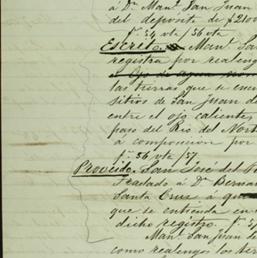 á Dn. Manl. San Juan
del deposito de $2100
fs. 54 vta /56 vta
Escrito. Manl. San
registra por realeng
el Ojo de agua
las tierras que se encu
sitios de San Juan de
entre el ojo calientes
paso del Rio del Nort
a composicion por
fs. 56 vta /57
Proveido. San José del P
Traslado á Dn. Bernar
Santa Cruz á qu
que se entienda en
dicho registro.
Manl. San Juan de
como realengos los ter